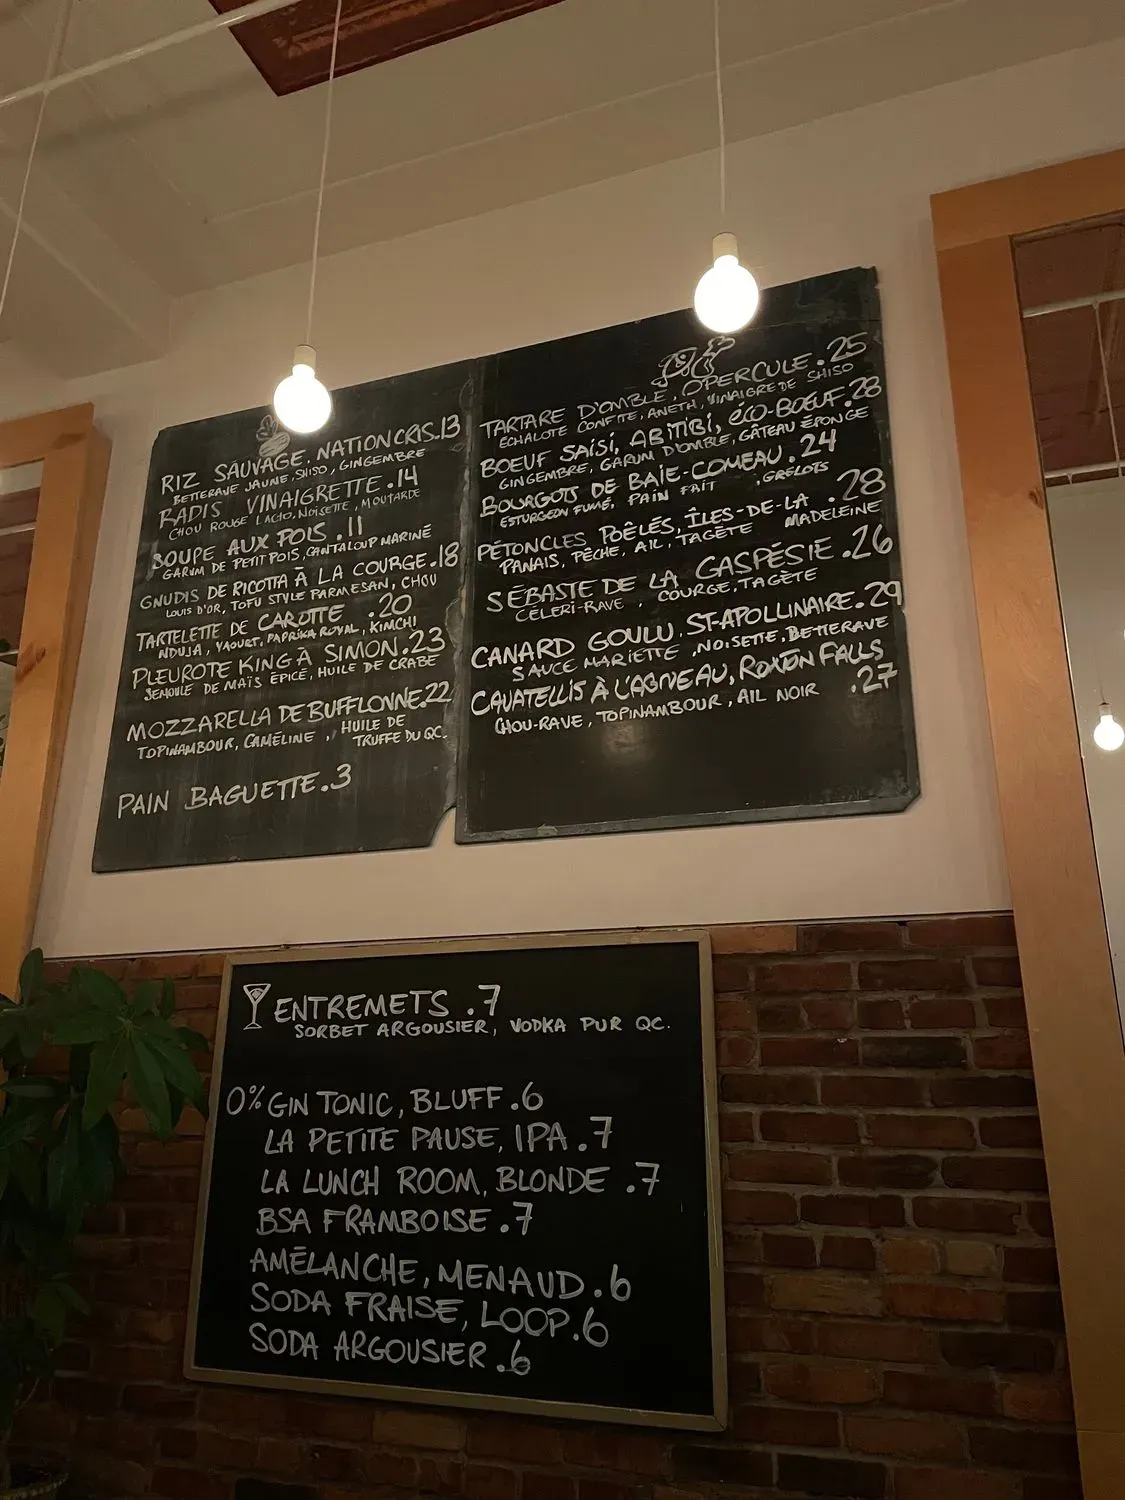 RIZ SAUVAGE, NATION CRIS.13
BETTERAVE JAUNE, SHISO, GINGEMBRE
RADIS VINAIGRETTE.14
CHOU ROUGE LACTO, NOISETTE, MOUTARDE
SOUPE AUX POIS.11
GARUM DE PETIT POIS, CANTALOUP MARINÉ
GNUDIS DE RICOTTA À LA COURGE.18
LOUIS D'OR, TOFU STYLE PARMESAN, CHOU
TARTELETTE DE CAROTTE .20
NDUJA, YAOURT, PAPRIKA ROYAL, KIMCHI
PLEUROTE KING À SIMON.23
SEMOULE DE MAÏS ÉPICÉ, HUILE DE CRABE
MOZZARELLA DE BUFFLONNE.22
TOPINAMBOUR, CAMÉLINE, HUILE DE
TRUFFE DU QC.
PAIN BAGUETTE.3
TARTARE D'OMBLE, OPERCULE.25
ÉCHALOTE CONFITE, ANETH, VINAIGRE DE SHISO
BOEUF SAISI, ABITIBI, éCO-BOEUF.28
GINGEMBRE, GARUM D'OMBLE, GÂTEAU ÉPONGE
BOURGOTS DE BAIE-COMEAU.24
ESTURGEON FUMÉ, PAIN FRIT ,GRELOTS
PÉTONCLES POÊLÉS, ÎLES-DE-LA .28
PANAIS, PÊCHE, AIL, TAGÈTE MADELEINE
SÉBASTE DE LA GASPÉSIE.26
CÉLERI-RAVE , COURGE, TAGÈTE
CANARD GOULU, ST-APOLLINAIRE.29
SAUCE MARIETTE, NOISETTE, BETTERAVE
CAVATELLIS À L'AGNEAU, ROXTON FALLS
CHOU-RAVE, TOPINAMBOUR, AIL NOIR .27
ENTREMETS .7
SORBET ARGOUSIER, VODKA PUR QC.
0% GIN TONIC, BLUFF.6
LA PETITE PAUSE, IPA.7
LA LUNCH ROOM, BLONDE .7
BSA FRAMBOISE.7
AMÉLANCHE, MENAUD.6
SODA FRAISE, LOOP.6
SODA ARGOUSIER.6